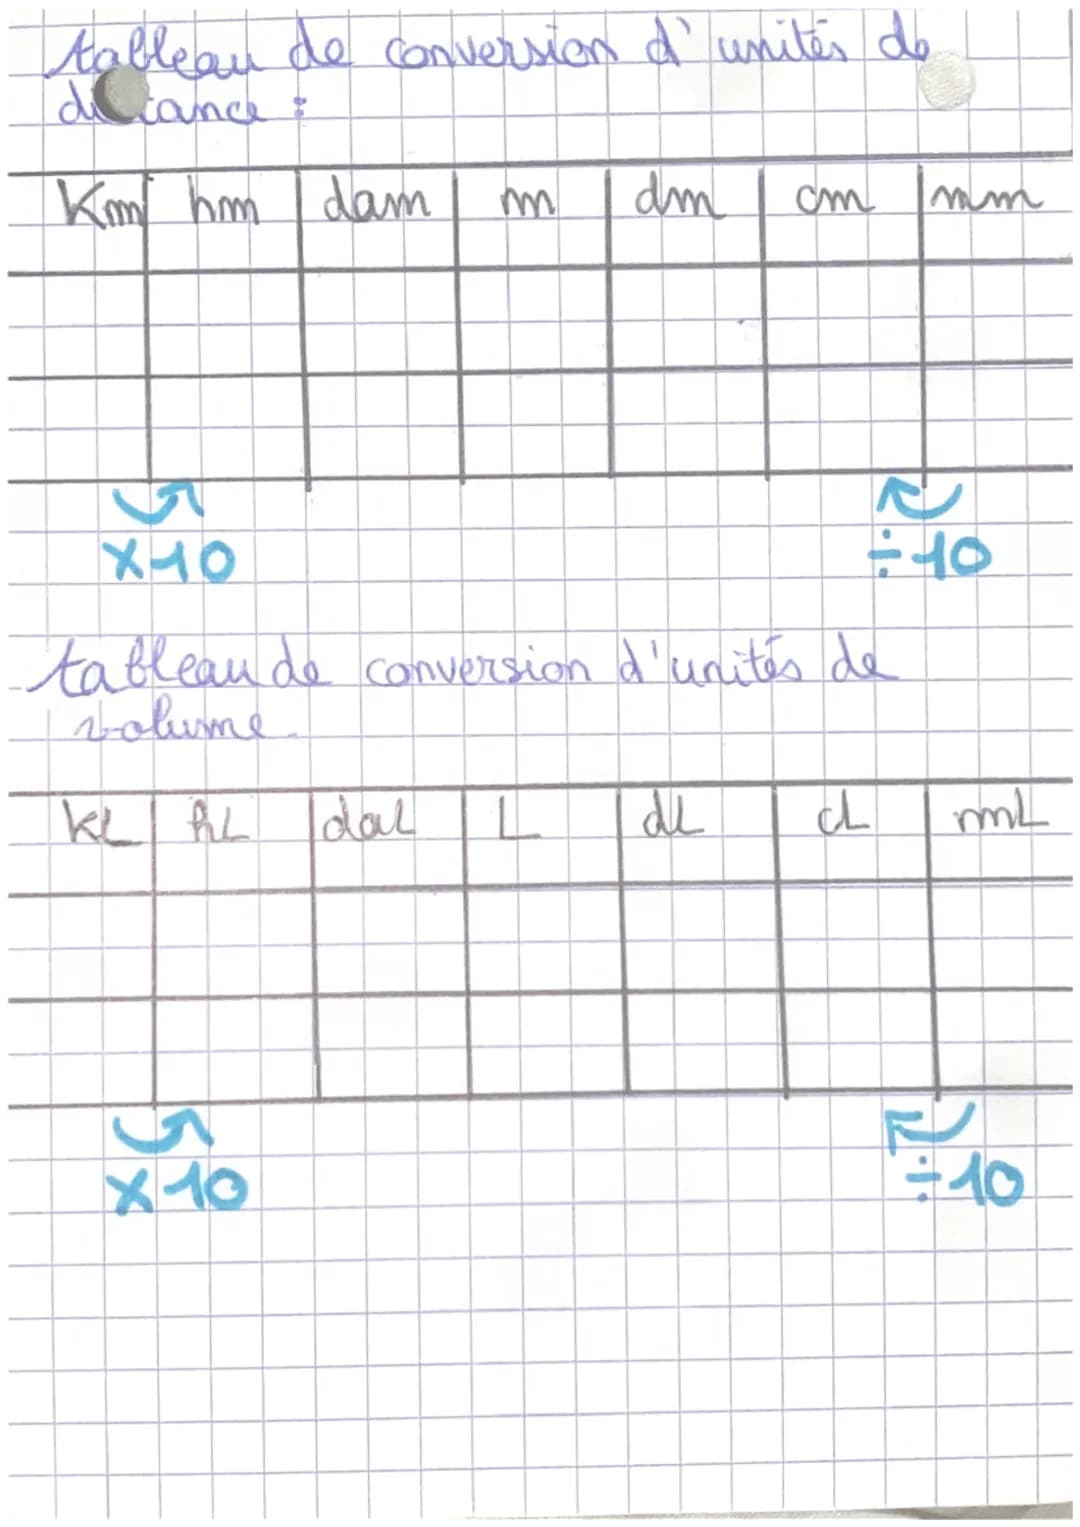 tableau de conversion d'unités de
distance :
Km hm dam m dm cm mm
x10 ÷10
tableau de conversion d'unités de
volume.
kL hL daL L dL cL mL
x10 ÷10